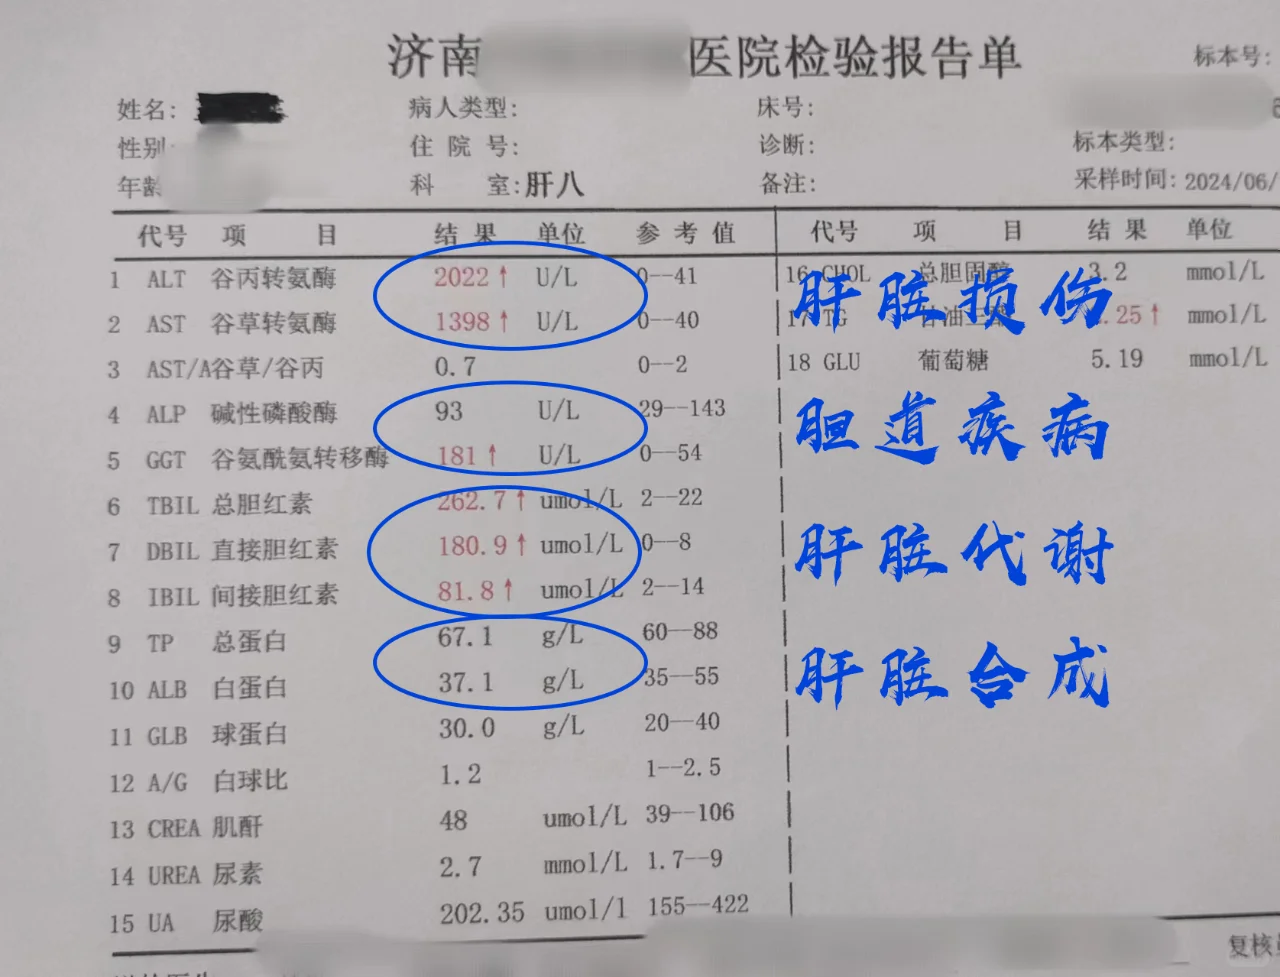 济南 医院检验报告单
标本号:
姓名: 病人类型: 床号:
性别: 住院号: 诊断: 标本类型:
年龄 科室:肝八 备注: 采样时间: 2024/06/
代号 项目 结果 单位 参考值 代号 项目 结果 单位
1 ALT 谷丙转氨酶 2022↑ U/L 0--41 16 CHOL 总胆固醇 3.2 mmol/L
肝脏损伤
2 AST 谷草转氨酶 1398↑ U/L 0--40 17 TG 甘油三酯 .25↑ mmol/L
3 AST/A谷草/谷丙 0.7 0--2 18 GLU 葡萄糖 5.19 mmol/L
4 ALP 碱性磷酸酶 93 U/L 29--143
胆道疾病
5 GGT 谷氨酰氨转移酶 181↑ U/L 0--54
6 TBIL 总胆红素 262.7↑ umol/L 2--22
7 DBIL 直接胆红素 180.9↑ umol/L 0--8
肝脏代谢
8 IBIL 间接胆红素 81.8↑ umol/L 2--14
9 TP 总蛋白 67.1 g/L 60--88
肝脏合成
10 ALB 白蛋白 37.1 g/L 35--55
11 GLB 球蛋白 30.0 g/L 20--40
12 A/G 白球比 1.2 1--2.5
13 CREA 肌酐 48 umol/L 39--106
14 UREA 尿素 2.7 mmol/L 1.7--9
15 UA 尿酸 202.35 umol/l 155--422
复核